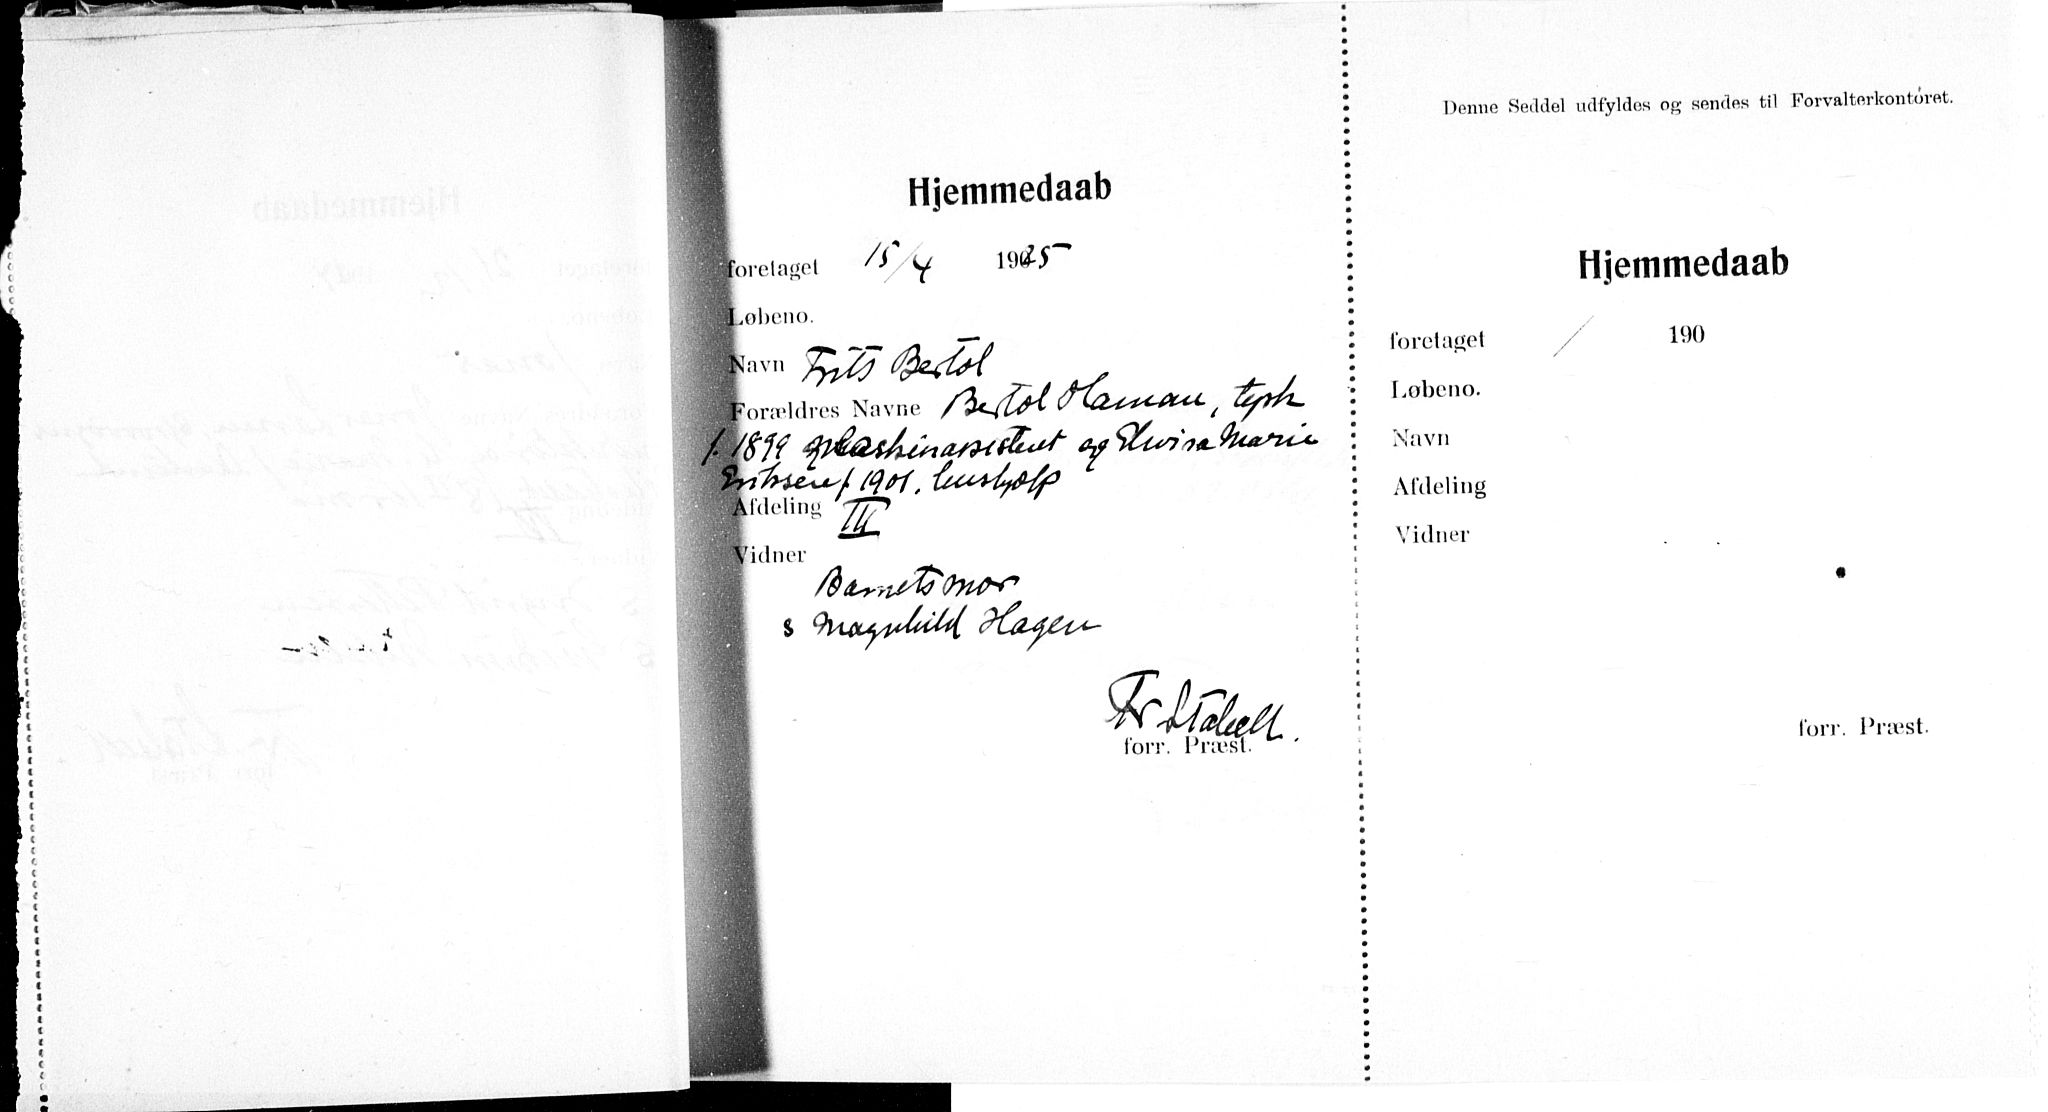 Hjemmedaab
foretaget 15/4 1925
Løbeno.
Navn Frits Bertol
Forældres Navne Bertol Haman, tysk
f. 1899 maskinassistent og Elvira Marie
Eriksen f. 1901. hushjælp
Afdeling III
Vidner
Barnets mor
s Magnhild Hagen
Fr. Stabell.
forr. Præst.
Denne Seddel udfyldes og sendes til Forvalterkontoret.
Hjemmedaab
foretaget / 190
Løbeno.
Navn
Afdeling
Vidner
forr. Præst.